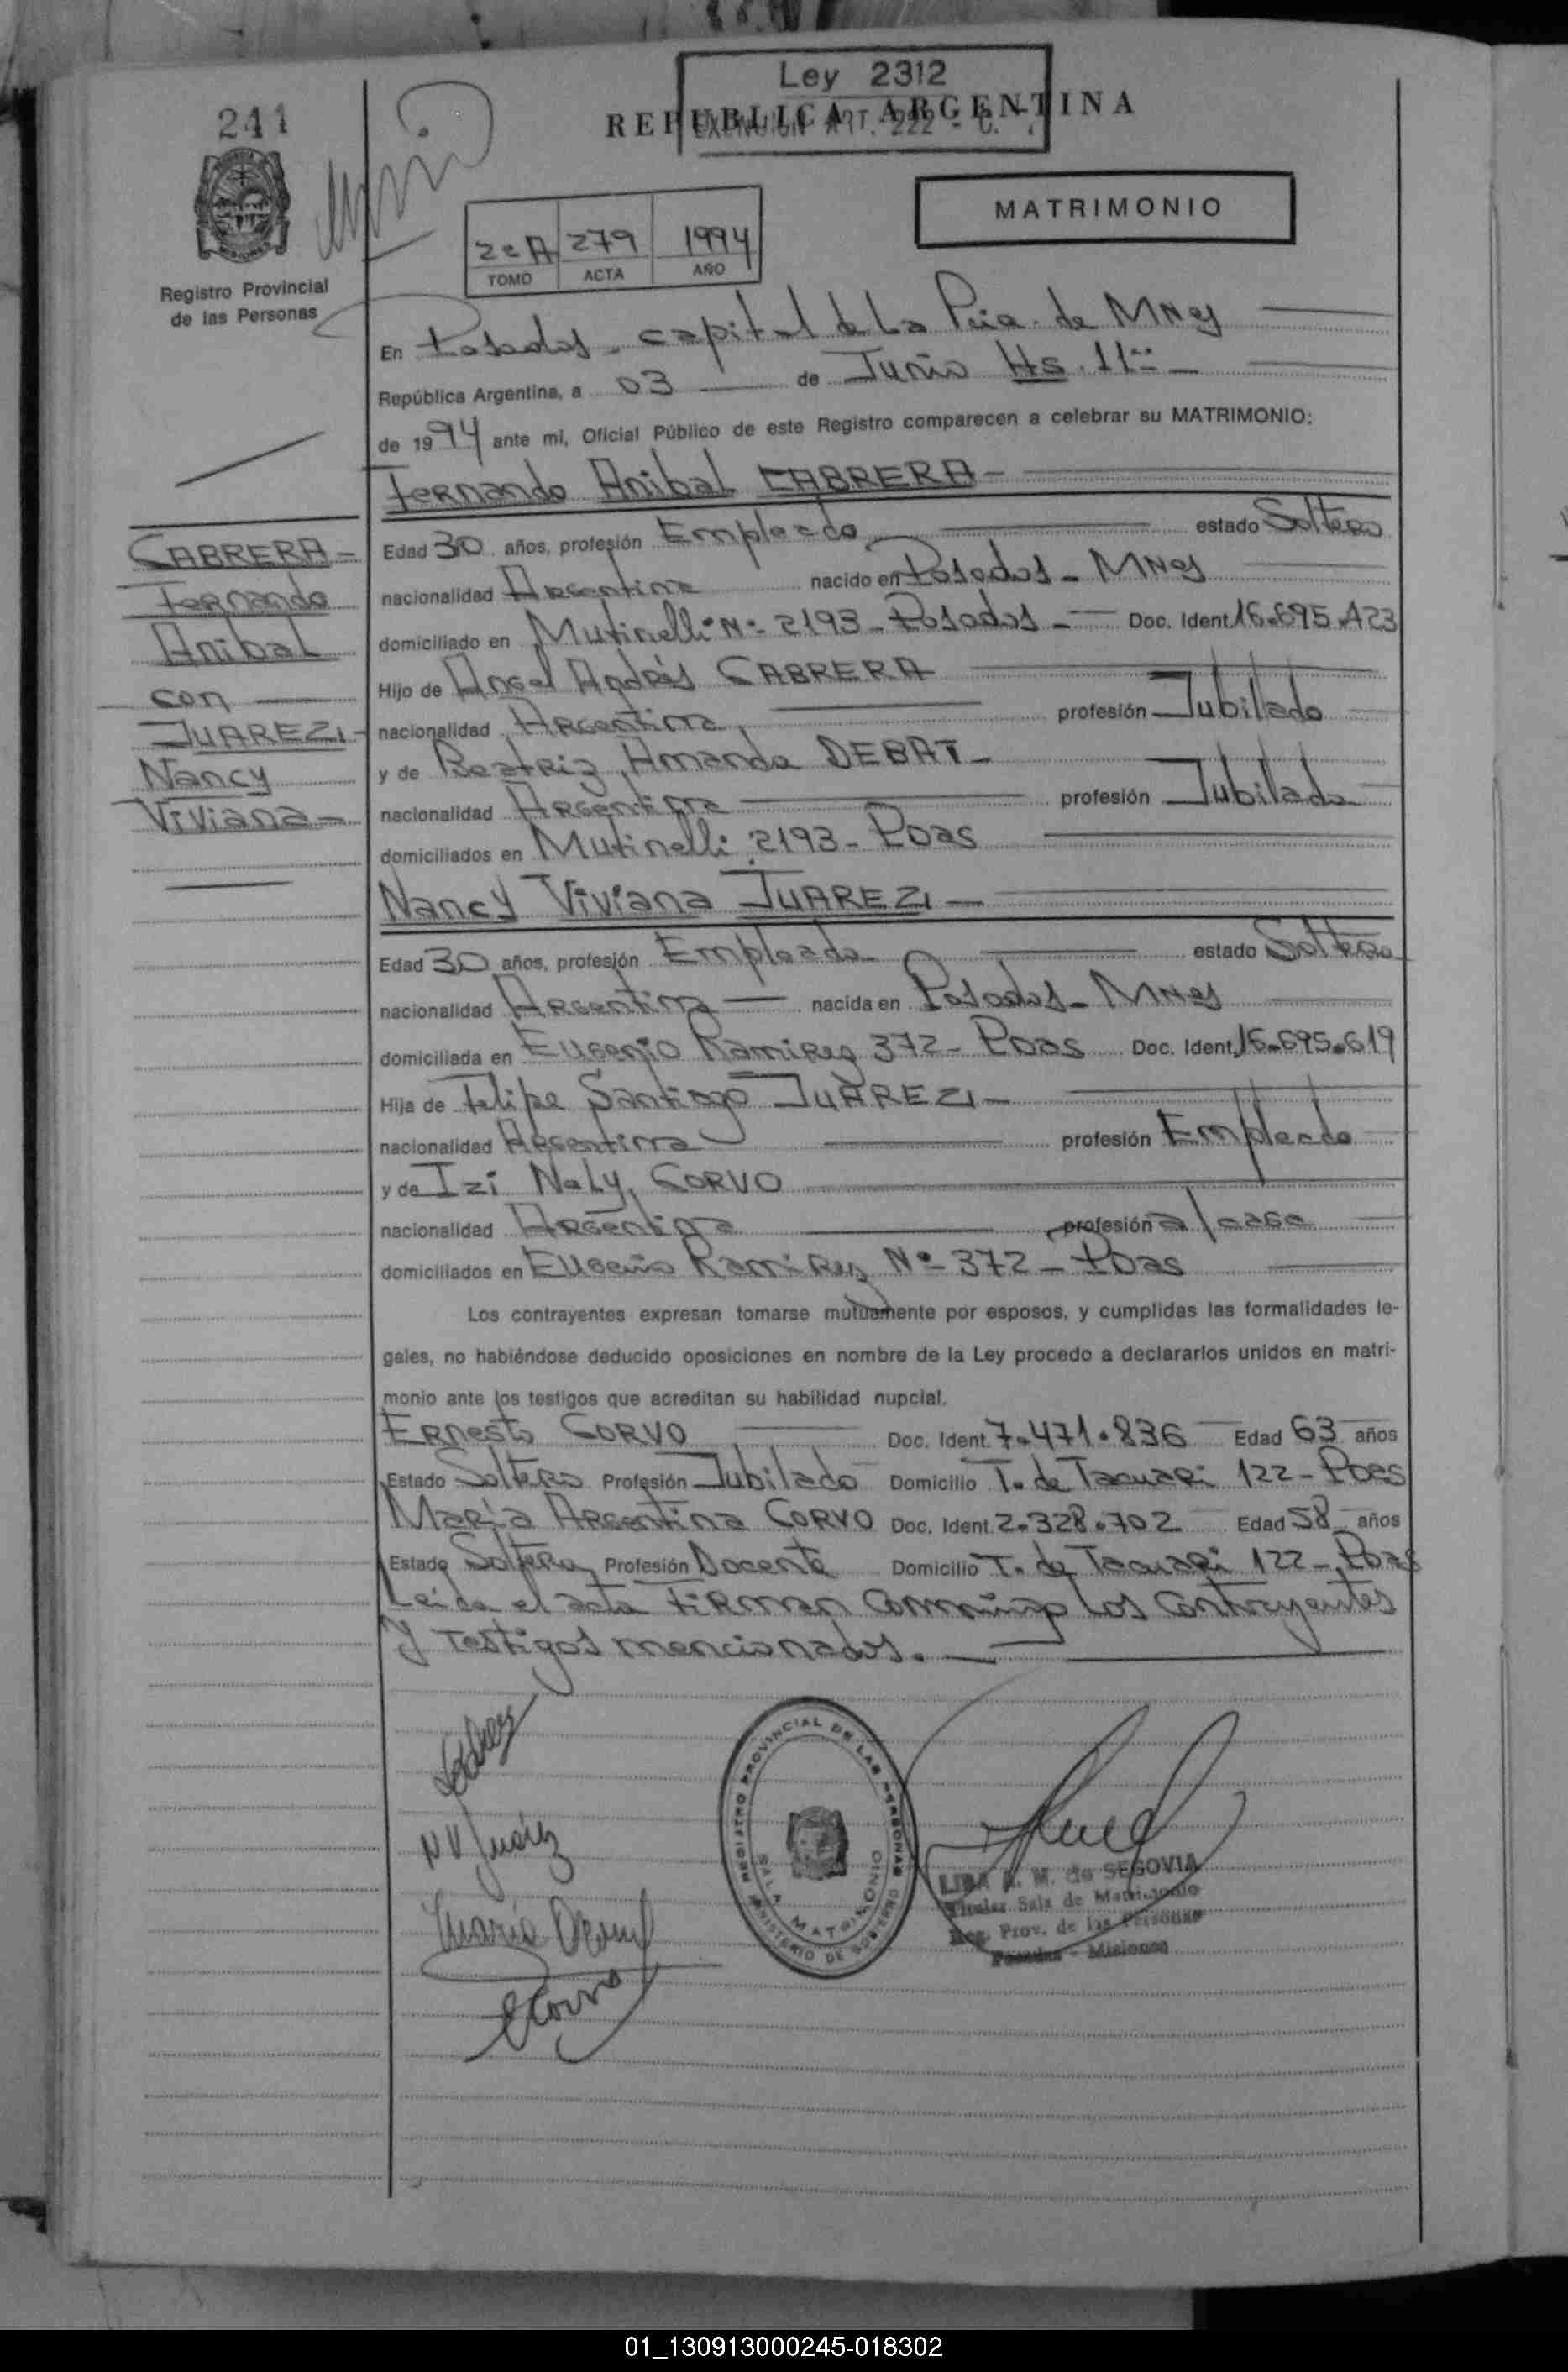 Ley 2312
REPUBLICA ARGENTINA
EXENCION ART. 222 - C.
241
MATRIMONIO
2º A 279 1994
TOMO ACTA AÑO
Registro Provincial
de las Personas
En Posadas - capital de La Pcia. de Mnes
República Argentina, a 03 de Junio Hs. 11
de 1994 ante mi, Oficial Público de este Registro comparecen a celebrar su MATRIMONIO:
Fernando Anibal CABRERA -
Edad 30 años, profesión Empleado estado Soltero
nacionalidad Argentina nacido en Posadas - Mnes
domiciliado en Mutinelli Nº 2193 - Posadas - Doc. Ident. 16.695.423
Hijo de Angel Andrés CABRERA
nacionalidad Argentina profesión Jubilado
y de Beatriz Amanda DEBAT -
nacionalidad Argentina profesión Jubilada
domiciliados en Mutinelli 2193 - Pdas
CABRERA -
Fernando
Anibal
con
JUAREZ -
Nancy
Viviana -
Nancy Viviana JUAREZ -
Edad 30 años, profesión Empleada estado Soltera
nacionalidad Argentina nacida en Posadas - Mnes
domiciliada en Eugenio Ramirez 372 - Pdas Doc. Ident. 16.695.619
Hija de Felipe Santiago JUAREZ -
nacionalidad Argentina profesión Empleado
y de Izi Nely CORVO
nacionalidad Argentina profesión a/casa
domiciliados en Eugenio Ramirez Nº 372 - Pdas
Los contrayentes expresan tomarse mutuamente por esposos, y cumplidas las formalidades le-
gales, no habiéndose deducido oposiciones en nombre de la Ley procedo a declararlos unidos en matri-
monio ante los testigos que acreditan su habilidad nupcial.
Ernesto CORVO Doc. Ident. 7.471.836 Edad 63 años
Estado Soltero Profesión Jubilado Domicilio T. de Tacuari 122 - Pdas
María Argentina CORVO Doc. Ident. 2.328.702 Edad 58 años
Estado Soltera Profesión Docente Domicilio T. de Tacuari 122 - Pdas
Leida el acta firman conmigo los contrayentes
y testigos mencionados. -
NV Juárez
María
ECorvo
REGISTRO PROVINCIAL DE LAS PERSONAS
SALA MATRIMONIO
MINISTERIO DE GOBIERNO
M. de SEGOVIA
Titular Sala de Matrimonio
Reg. Prov. de las Personas
Posadas - Misiones
01_130913000245-018302